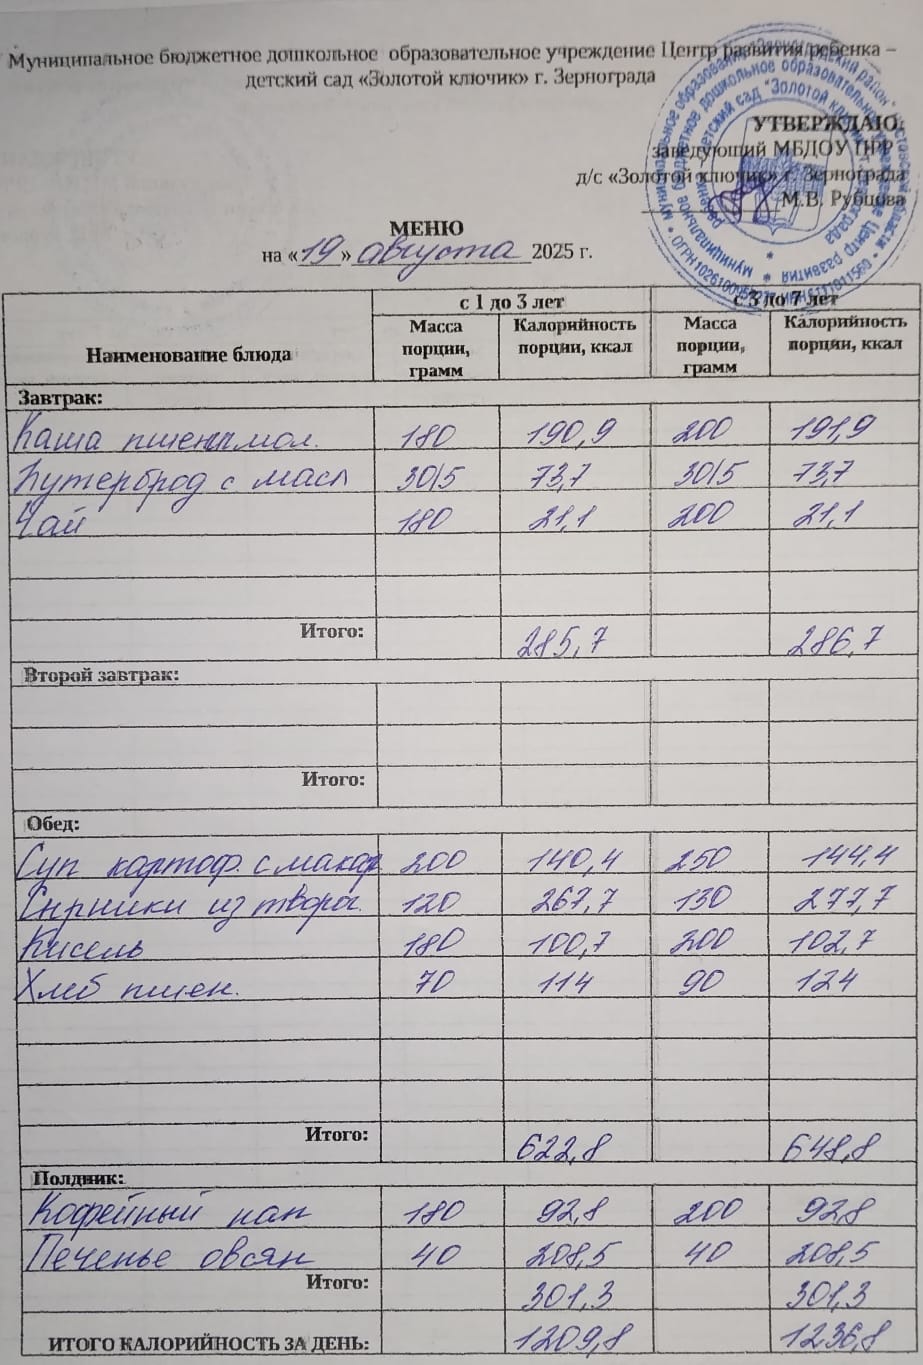 Муниципальное бюджетное дошкольное образовательное учреждение Центр развития ребенка –
детский сад «Золотой ключик» г. Зернограда
УТВЕРЖДАЮ:
заведующий МБДОУ ЦРР
д/с «Золотой ключик» г. Зернограда
М.В. Рубцова
МЕНЮ
на «19» августа 2025 г.
Наименование блюда с 1 до 3 лет с 3 до 7 лет
Масса порции, грамм Калорийность порции, ккал Масса порции, грамм Калорийность порции, ккал
Завтрак:
Каша пшен. мол. 180 190,9 200 191,9
Бутерброд с масл 30/5 73,7 30/5 73,7
Чай 180 21,1 200 21,1
Итого: 285,7 286,7
Второй завтрак:
Итого:
Обед:
Суп картоф. с макар 200 140,4 250 144,4
Сырники из творог. 120 267,7 130 277,7
Кисель 180 100,7 200 102,7
Хлеб пшен. 70 114 90 124
Итого: 622,8 648,8
Полдник:
Кофейный нап 180 92,8 200 92,8
Печенье овсян 40 208,5 40 208,5
Итого: 301,3 301,3
ИТОГО КАЛОРИЙНОСТЬ ЗА ДЕНЬ: 1209,8 1236,8